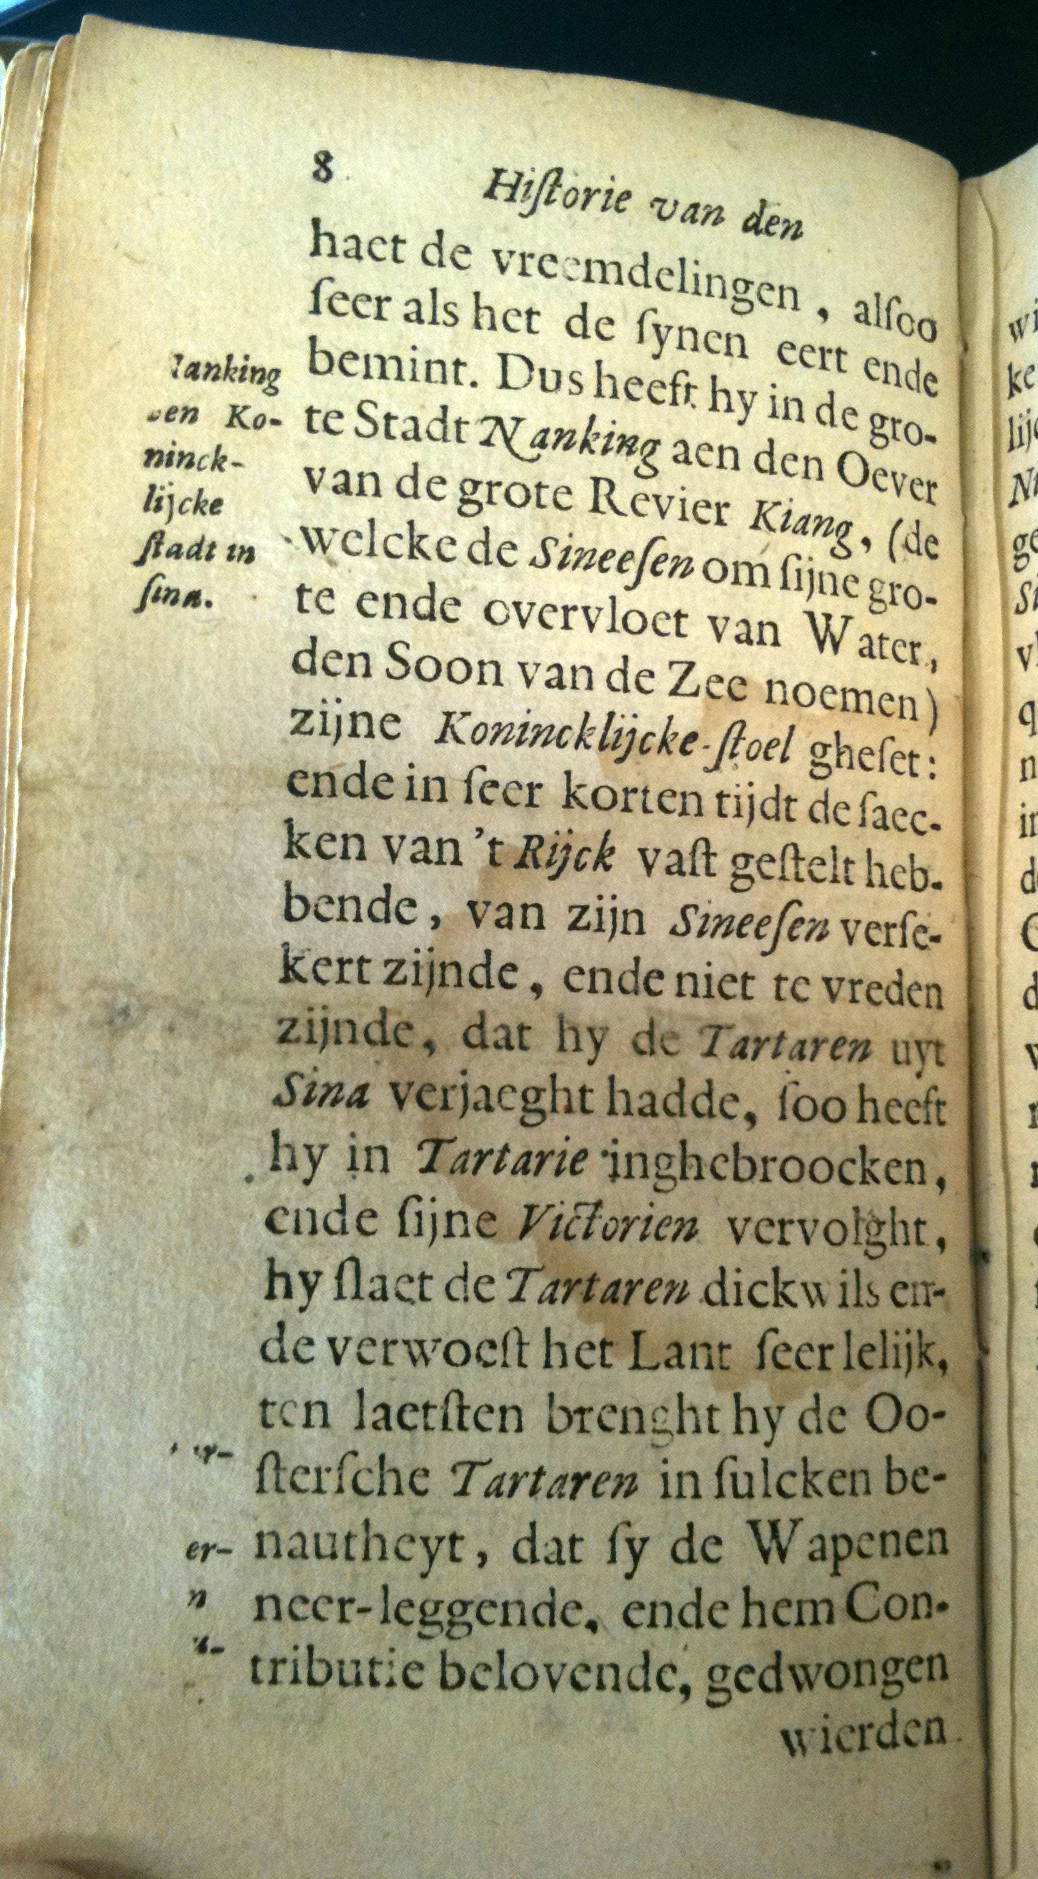 8 Hiſtorie van den
haet de vreemdelingen, alſoo
ſeer als het de ſynen eert ende
bemint. Dus heeft hy in de gro-
te Stadt Nanking aen den Oever
van de grote Revier Kiang, (de
welcke de Sineeſen om ſijne gro-
te ende overvloet van Water,
den Soon van de Zee noemen)
zijne Konincklijcke-ſtoel gheſet:
ende in ſeer korten tijdt de ſaec-
ken van 't Rijck vaſt geſtelt heb-
bende, van zijn Sineeſen verſe-
kert zijnde, ende niet te vreden
zijnde, dat hy de Tartaren uyt
Sina verjaeght hadde, ſoo heeft
hy in Tartarie inghebroocken,
ende ſijne Victorien vervolght,
hy ſlaet de Tartaren dickwils en-
de verwoeſt het Lant ſeer lelijk,
ten laetſten brenght hy de Oo-
ſterſche Tartaren in ſulcken be-
nautheyt, dat ſy de Wapenen
neer-leggende, ende hem Con-
tributie belovende, gedwongen
wierden
Nanking
een Ko-
ninck-
lijcke
ſtadt in
ſina.
er-
n